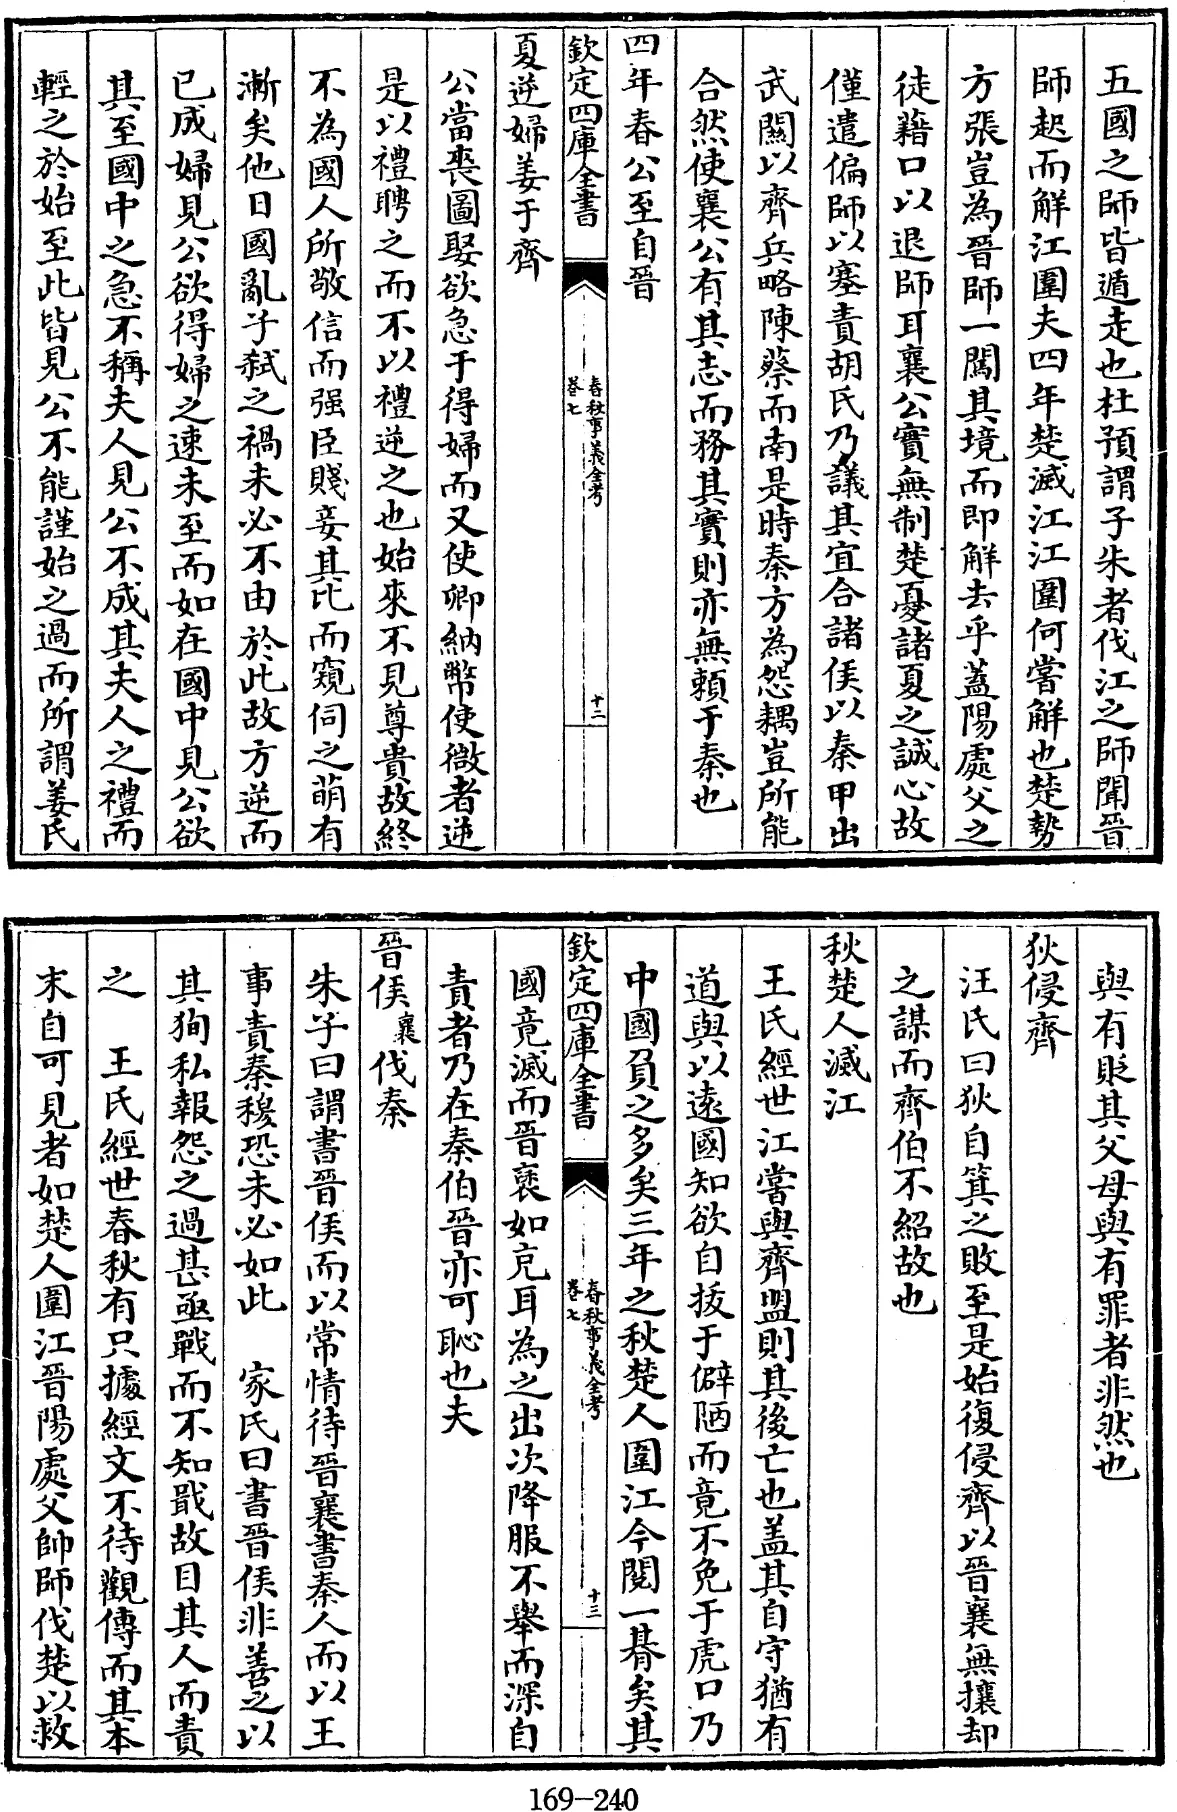 五國之師皆遁走也杜預謂子朱者伐江之師聞晉
師起而解江圍夫四年楚滅江江圍何嘗解也楚勢
方張豈為晉師一闖其境而即解去乎蓋陽處父之
徒藉口以退師耳襄公實無制楚憂諸夏之誠心故
僅遣偏師以塞責胡氏乃議其宜合諸侯以秦甲出
武關以齊兵略陳蔡而南是時秦方為怨耦豈所能
合然使襄公有其志而務其實則亦無賴于秦也
四年春公至自晉
欽定四庫全書
春秋事義全考
卷七
十二
夏逆婦姜于齊
公當喪圖娶欲急于得婦而又使卿納幣使微者逆
是以禮聘之而不以禮逆之也始來不見尊貴故終
不為國人所敬信而强臣賤妾其比而窺伺之萌有
漸矣他日國亂子弑之禍未必不由於此故方逆而
已成婦見公欲得婦之速未至而如在國中見公欲
其至國中之急不稱夫人見公不成其夫人之禮而
輕之於始至此皆見公不能謹始之過而所謂姜氏
與有貶其父母與有罪者非然也
狄侵齊
汪氏曰狄自箕之敗至是始復侵齊以晉襄無攘却
之謀而齊伯不紹故也
秋楚人滅江
王氏經世江嘗與齊盟則其後亡也盖其自守猶有
道與以遠國知欲自拔于僻陋而竟不免于虎口乃
中國負之多矣三年之秋楚人圍江今閱一朞矣其
欽定四庫全書
春秋事義全考
卷七
十三
國竟滅而晉襄如充耳為之出次降服不舉而深自
責者乃在秦伯晉亦可恥也夫
晉侯襄伐秦
朱子曰謂書晉侯而以常情待晉襄書秦人而以王
事責秦穆恐未必如此 家氏曰書晉侯非善之以
其狥私報怨之過甚亟戰而不知戢故目其人而責
之 王氏經世春秋有只據經文不待觀傳而其本
末自可見者如楚人圍江晉陽處父帥師伐楚以救
169-240